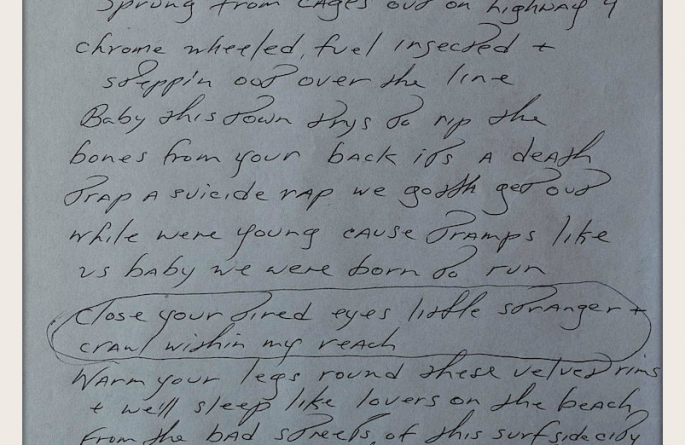 sprung from cages out on highway 9
chrome wheeled, fuel injected +
steppin out over the line
Baby this town trys to rip the
bones from your back its a death
trap a suicide rap we gotta get out
while were young cause tramps like
us baby we were born to run
close your tired eyes little stranger +
crawl within my reach
Warm your legs round these velvet rims
+ we'll sleep like lovers on the beach
from the bad streets, of this surfside city